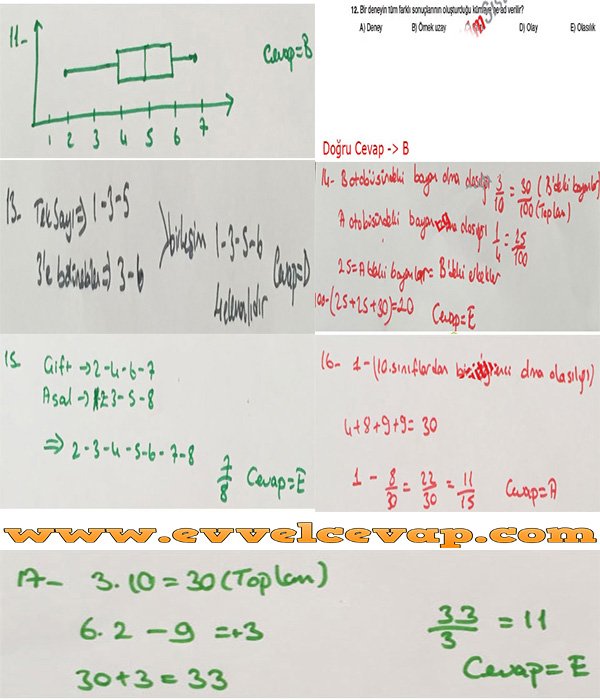 11-
Cevap=B
1 2 3 4 5 6 7
12. Bir deneyin tüm farklı sonuçlarının oluşturduğu kümeye ne ad verilir?
A) Deney B) Örnek uzay D) Olay E) Olasılık
Doğru Cevap -> B
13- Tek Sayı => 1-3-5
3'e bölünebilen => 3-6
birleşim 1-3-5-6
4 elemanlıdır
Cevap=D
14- B otobüsündeki bayan olma olasılığı 3/10 = 30/100 (B'deki bayanlar) (Toplam)
A otobüsündeki bayan olma olasılığı 1/4 = 25/100
25=A'daki bayanlar= B'deki erkekler
100-(25+25+30)=20 Cevap=E
15. Çift -> 2-4-6-7
Asal -> 2 3-5-8
=> 2-3-4-5-6-7-8
7/8 Cevap=E
16- 1-(10.sınıflardan öğrenci olma olasılığı)
4+8+9+9=30
1 - 8/30 = 22/30 = 11/15 Cevap=A
www.evvelcevap.com
17- 3.10=30(Toplam)
6.2 - 9 =+3
30+3=33
33/3 = 11
Cevap=E